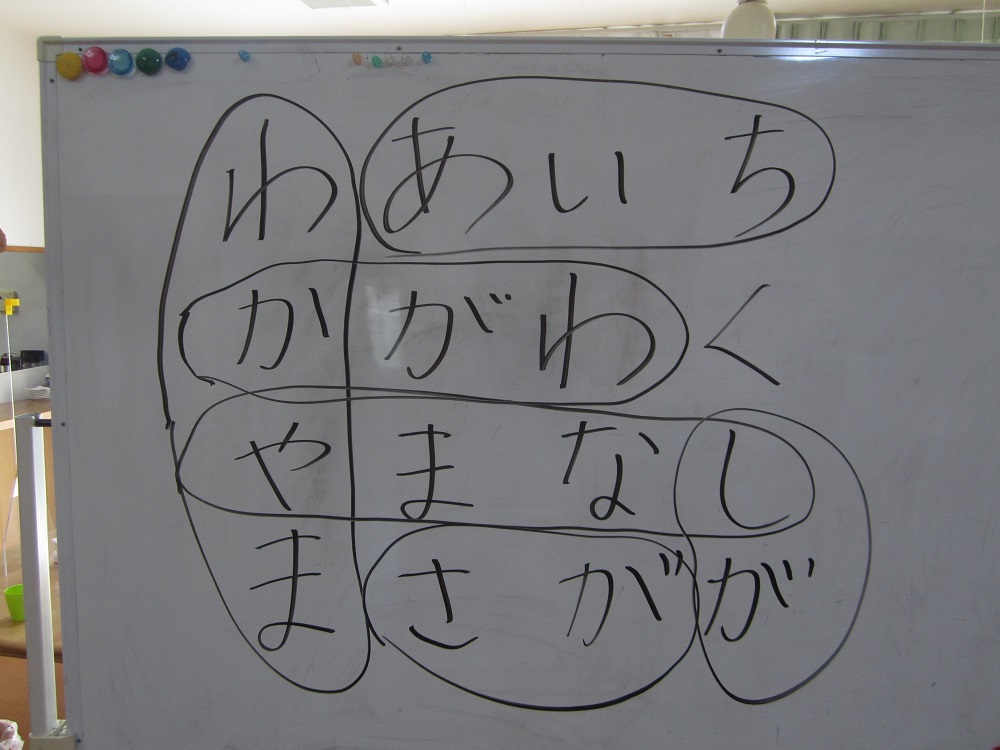 わあいち
かがわく
やまなし
まさがが